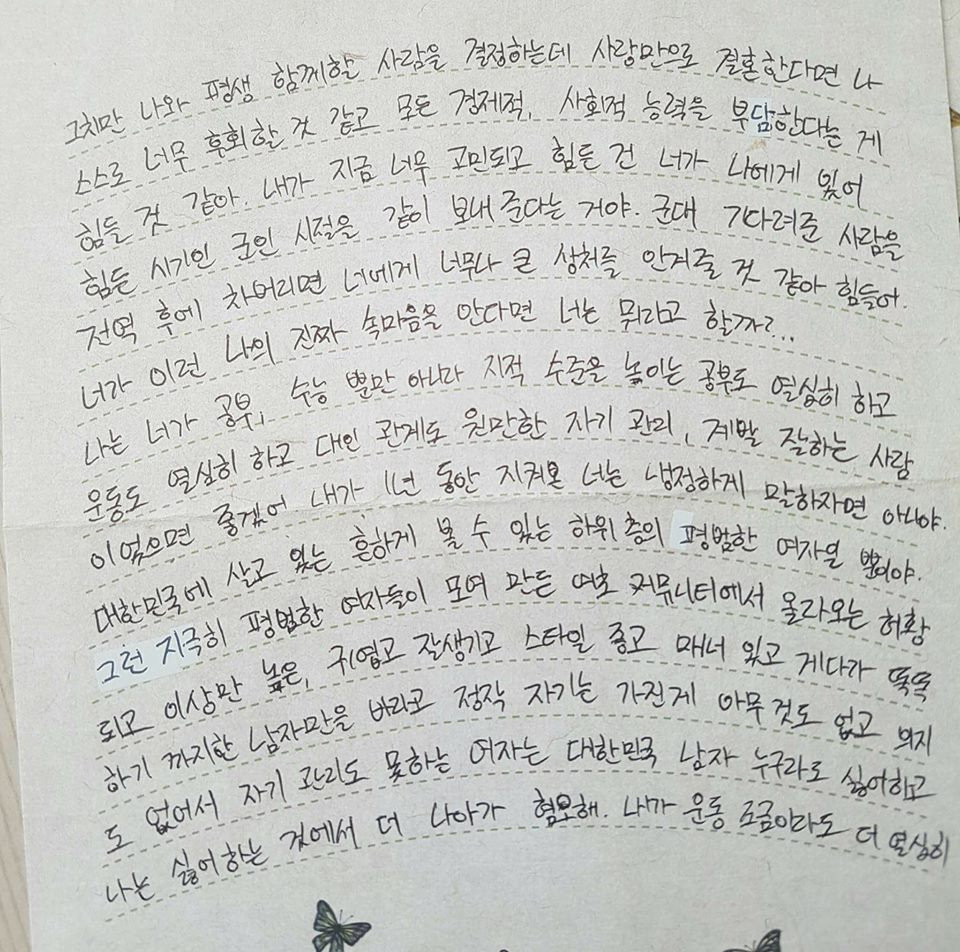 그치만 나와 평생 함께할 사람을 결정하는데 사랑만으로 결혼한다면 나
스스로 너무 후회할 것 같고 모든 경제적, 사회적 능력을 부담한다는 게
힘들 것 같아. 내가 지금 너무 고민되고 힘든 건 너가 나에게 있어
힘든 시기인 군인 시절을 같이 보내 준다는 거야. 군대 기다려준 사람을
전역 후에 차버리면 너에게 너무나 큰 상처를 안겨줄 것 같아 힘들어.
너가 이런 나의 진짜 속마음을 안다면 너는 뭐라고 할까?...
나는 너가 공부, 수능 뿐만 아니라 지적 수준을 높이는 공부도 열심히 하고
운동도 열심히 하고 대인 관계도 원만한 자기 관리, 계발 잘하는 사람
이였으면 좋겠어 내가 1년 동안 지켜본 너는 냉정하게 말하자면 아니야.
대한민국에 살고 있는 흔하게 볼 수 있는 하위층의 평범한 여자일 뿐이야.
그런 지극히 평범한 여자들이 모여 만든 여초 커뮤니티에서 올라오는 허황
되고 이상만 높은, 귀엽고 잘생기고 스타일 좋고 매너 있고 게다가 똑똑
하기 까지한 남자만을 바라고 정작 자기는 가진게 아무 것도 없고 의지
도 없어서 자기 관리도 못하는 여자는 대한민국 남자 누구라도 싫어하고
나는 싫어하는 것에서 더 나아가 혐오해. 내가 운동 조금이라도 더 열심히